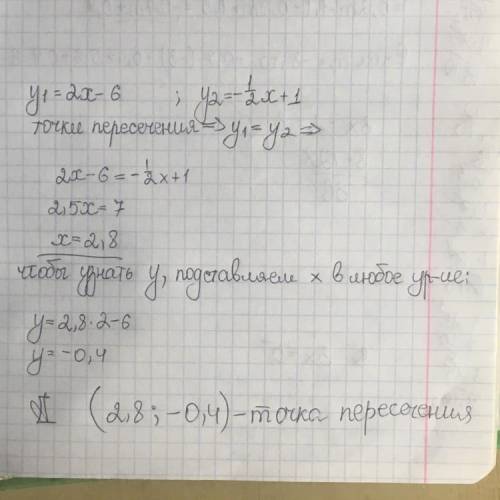 y₁ = 2x - 6 ; y₂ = -½x + 1
точки пересечения ⇒ y₁ = y₂ ⇒
2x - 6 = -½x + 1
2,5x = 7
x = 2,8
чтобы узнать y, подставляем x в любое ур-ие:
y = 2,8 · 2 - 6
y = -0,4
(2,8 ; -0,4) - точка пересечения